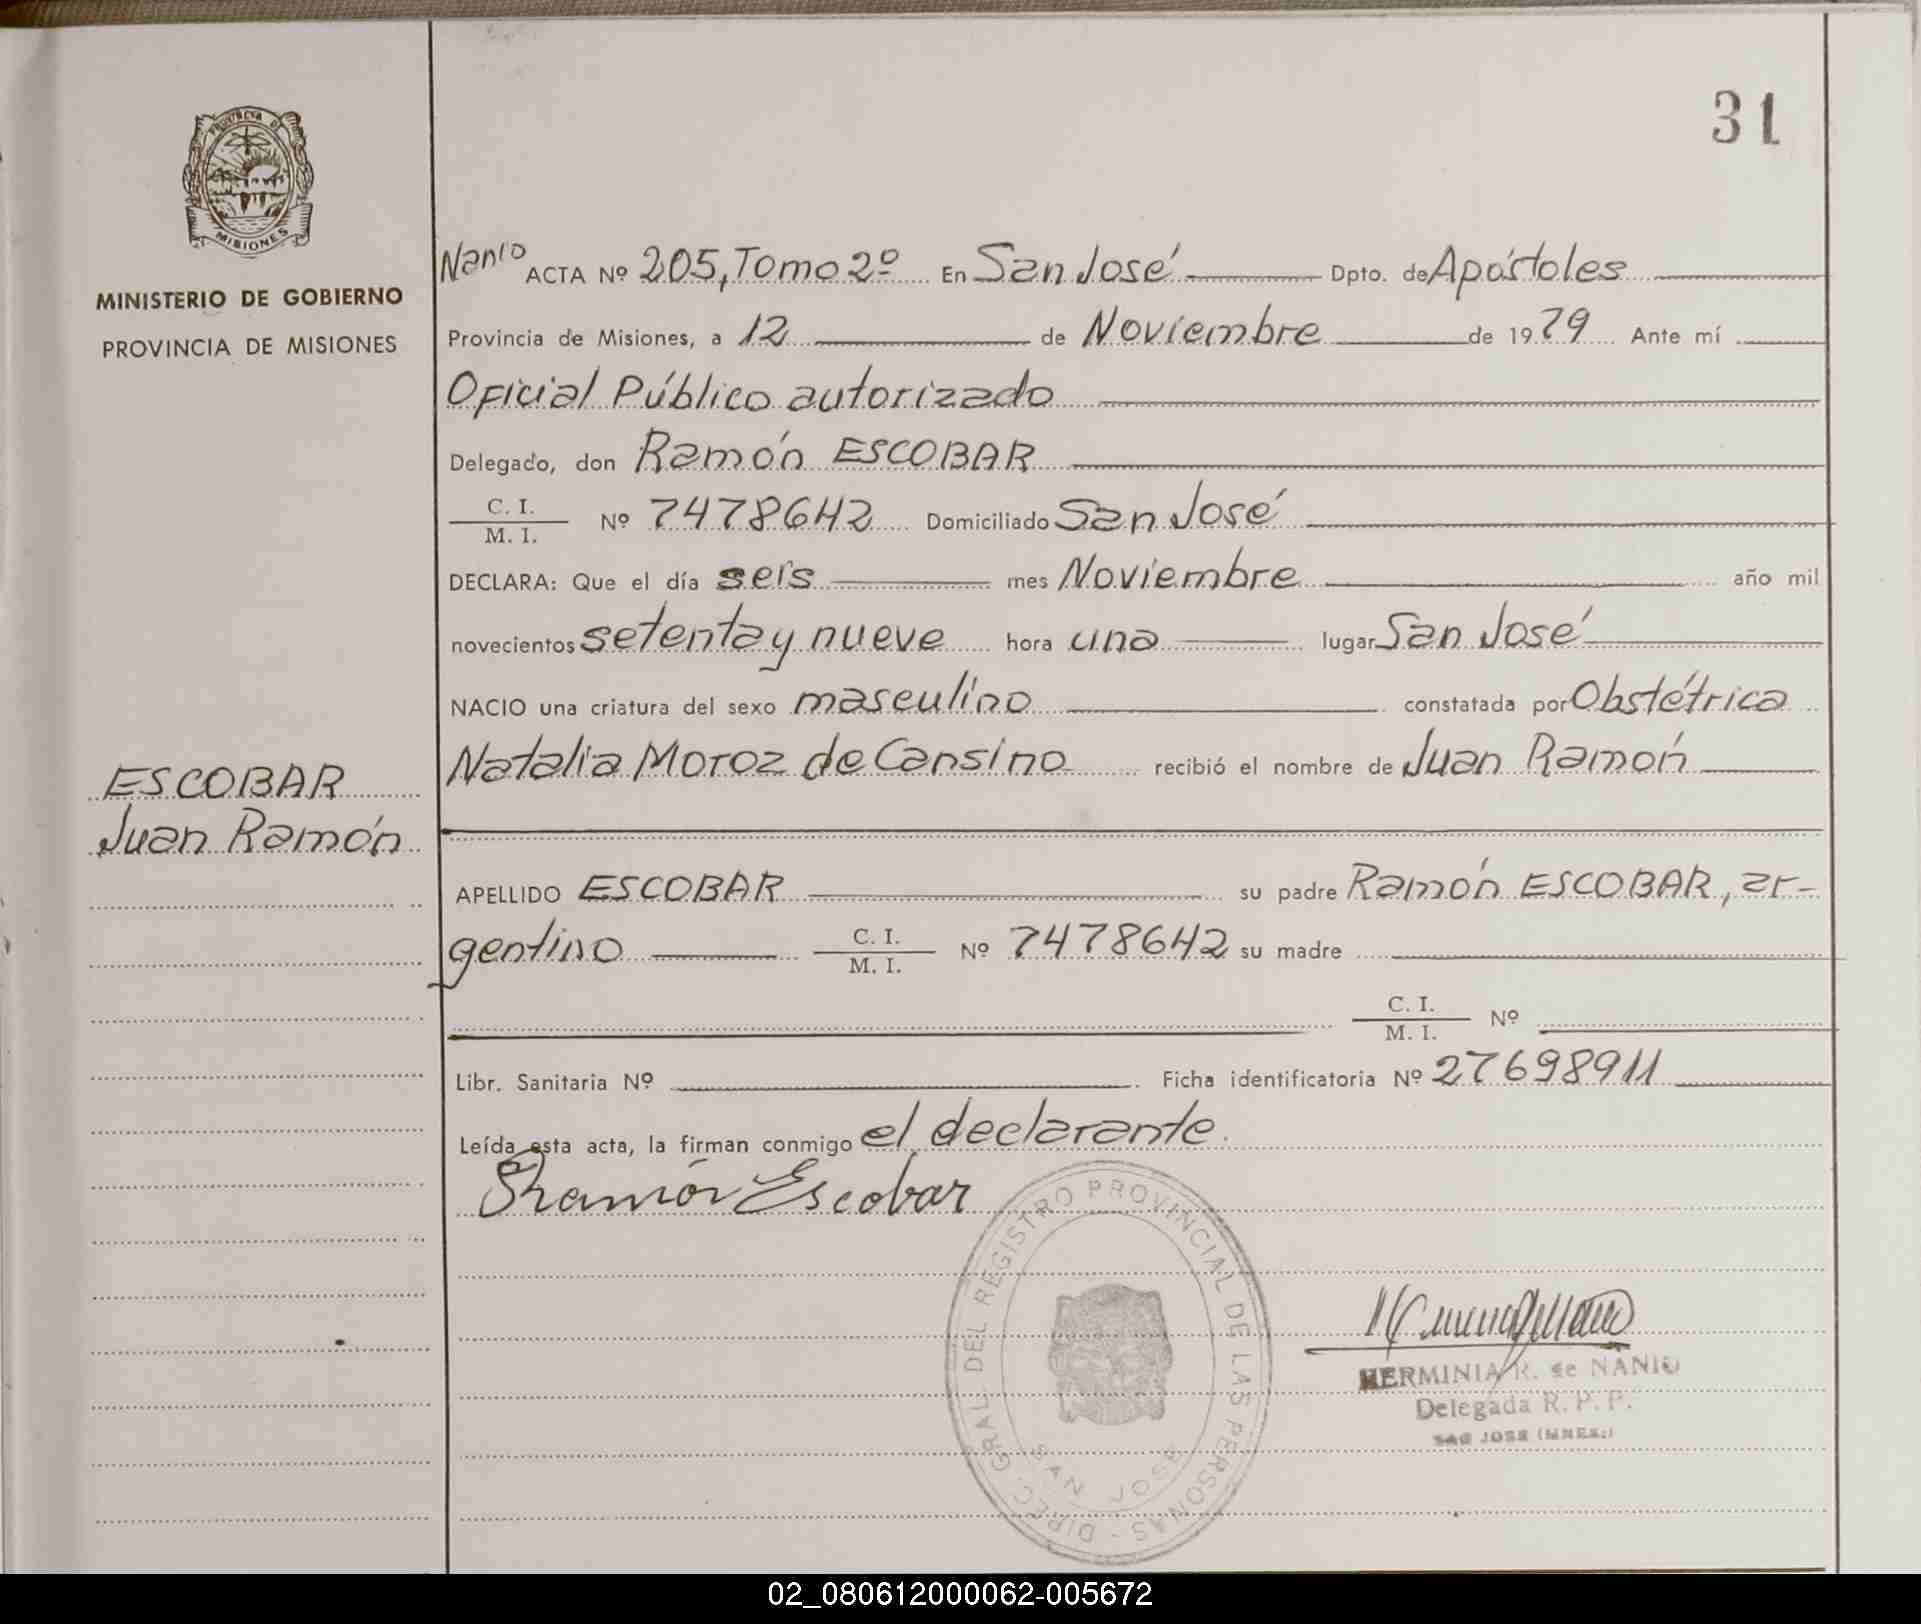 31
PROVINCIA DE
MISIONES
MINISTERIO DE GOBIERNO
PROVINCIA DE MISIONES
ESCOBAR
Juan Ramón
Nanio ACTA Nº 205, Tomo 2º En San José Dpto. de Apóstoles
Provincia de Misiones, a 12 de Noviembre de 1979 Ante mí
Oficial Público autorizado
Delegado, don Ramón ESCOBAR
C. I.
M. I. Nº 7478642 Domiciliado San José
DECLARA: Que el día seis mes Noviembre año mil
novecientos setenta y nueve hora una lugar San José
NACIO una criatura del sexo masculino constatada por Obstétrica
Natalia Moroz de Cansino recibió el nombre de Juan Ramón
APELLIDO ESCOBAR su padre Ramón ESCOBAR, ar-
gentino C. I. M. I. Nº 7478642 su madre
C. I. M. I. Nº
Libr. Sanitaria Nº Ficha identificatoria Nº 27698911
Leída esta acta, la firman conmigo el declarante.
Ramón Escobar
DIREC. GRAL. DEL REGISTRO PROVINCIAL DE LAS PERSONAS -
SAN JOSE
HERMINIA R. de NANIO
Delegada R. P. P.
SAN JOSE (MNES.)
02_080612000062-005672